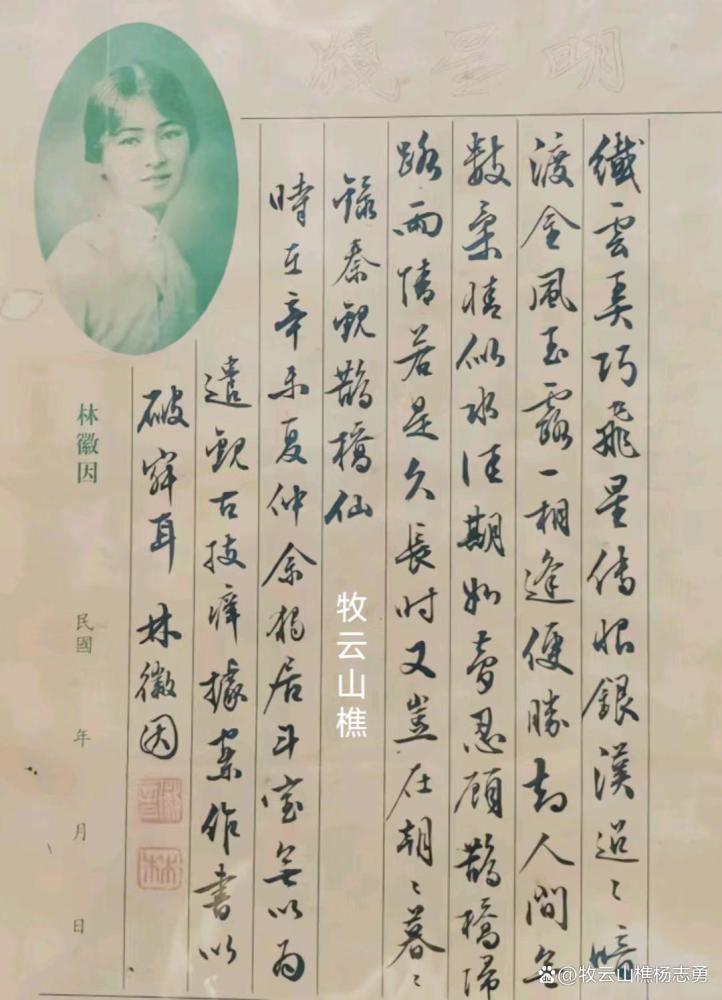 明星牋
纖雲弄巧飛星傳恨銀漢迢〻暗
渡金風玉露一相逢便勝却人間無
數柔情似水佳期如夢忍顧鵲橋歸
路兩情若是久長時又豈在朝〻暮〻
錄秦觀鵲橋仙
時在辛未夏仲余獨居斗室無以為
遣觀古技痒據案作書以
破寂耳 林徽因
林
林徽因
民國 年 月 日
牧云山樵
@牧云山樵杨志勇